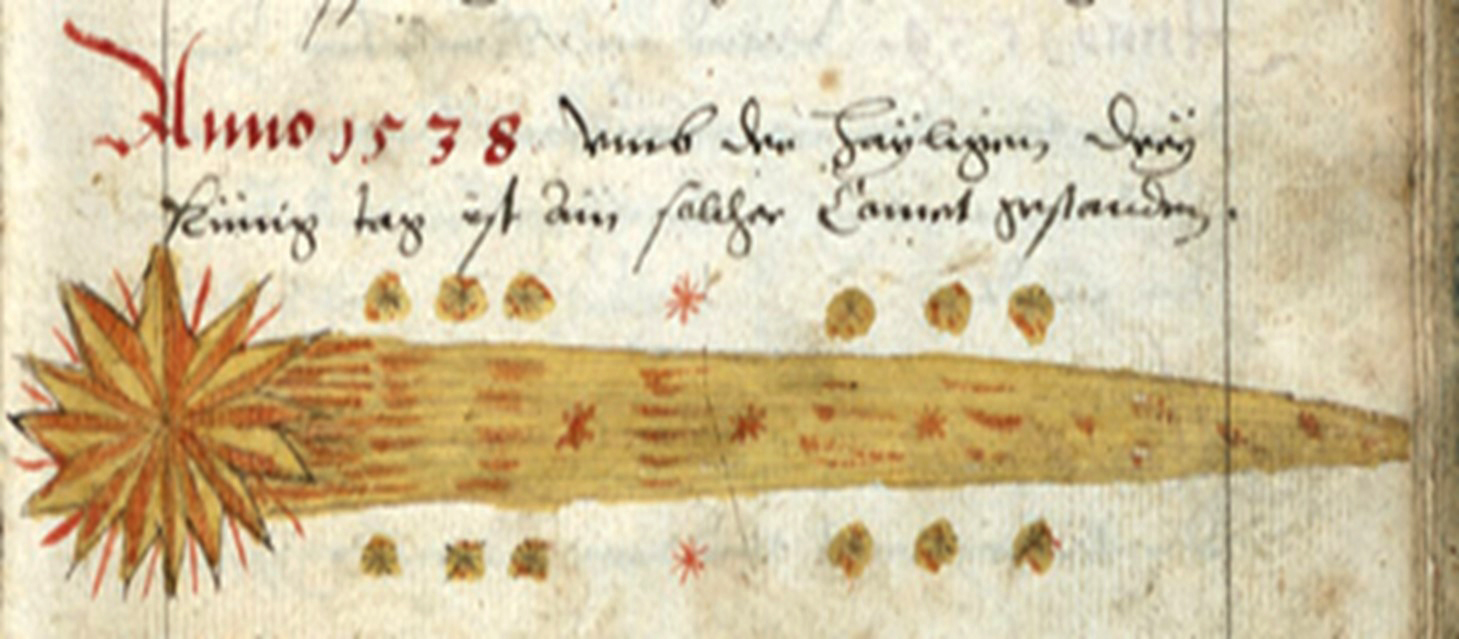 Anno 1538 vmb der hayligen drey
künig tag ist ain solcher Comet gestanden.